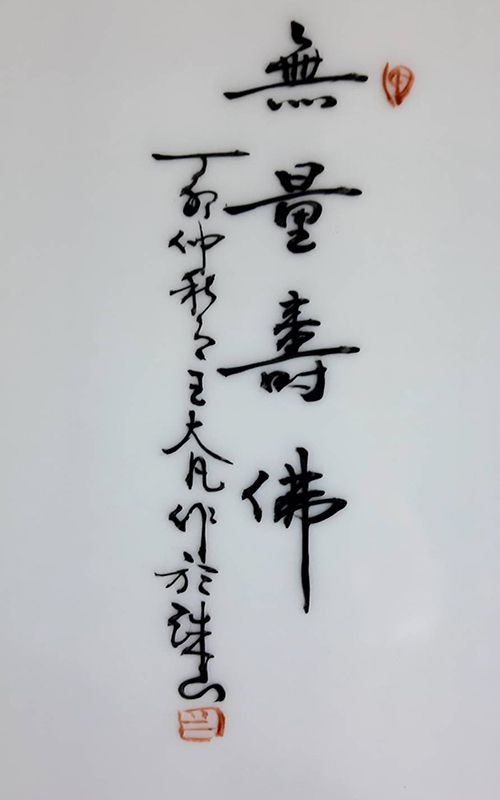 無量壽佛
丁卯仲秋月王大凡作於珠山